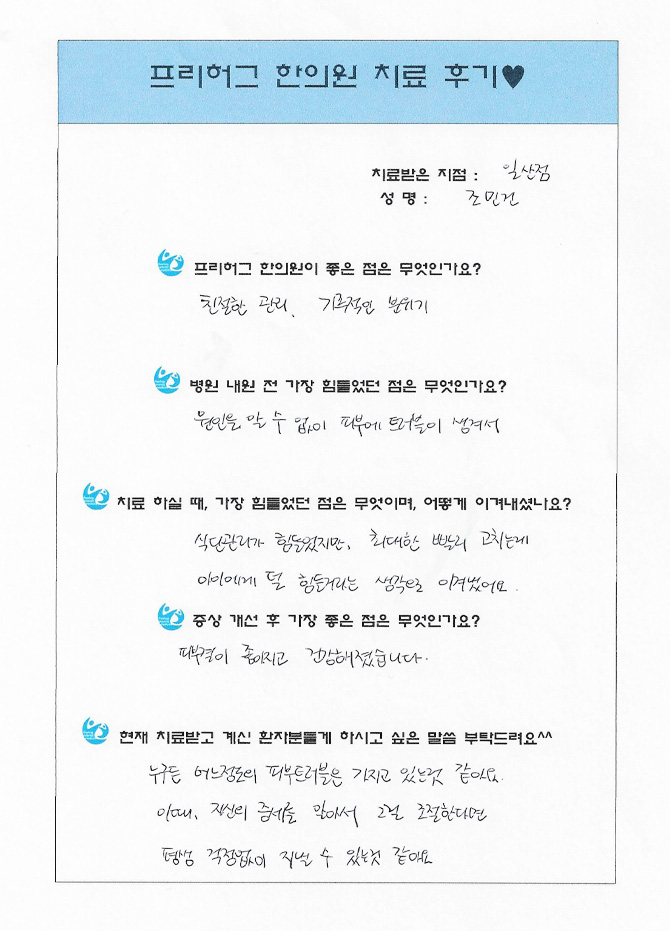 프리허그 한의원 치료 후기♥
치료받은 지점 : 일산점
성 명 : 조민건
프리허그 한의원이 좋은 점은 무엇인가요?
친절한 관리, 가족적인 분위기
병원 내원 전 가장 힘들었던 점은 무엇인가요?
원인을 알 수 없이 피부에 트러블이 생겨서
치료 하실 때, 가장 힘들었던 점은 무엇이며, 어떻게 이겨내셨나요?
식단관리가 힘들었지만, 최대한 빨리 고치는게
아이에게 덜 힘든거라는 생각으로 이겨냈어요.
증상 개선 후 가장 좋은 점은 무엇인가요?
피부결이 좋아지고 건강해졌습니다.
현재 치료받고 계신 환자분들게 하시고 싶은 말씀 부탁드려요^^
누구든 어느정도의 피부트러블은 가지고 있는것 같아요.
이때, 자신의 증세를 알아서 그걸 조절한다면
평생 걱정없이 지낼 수 있는것 같아요